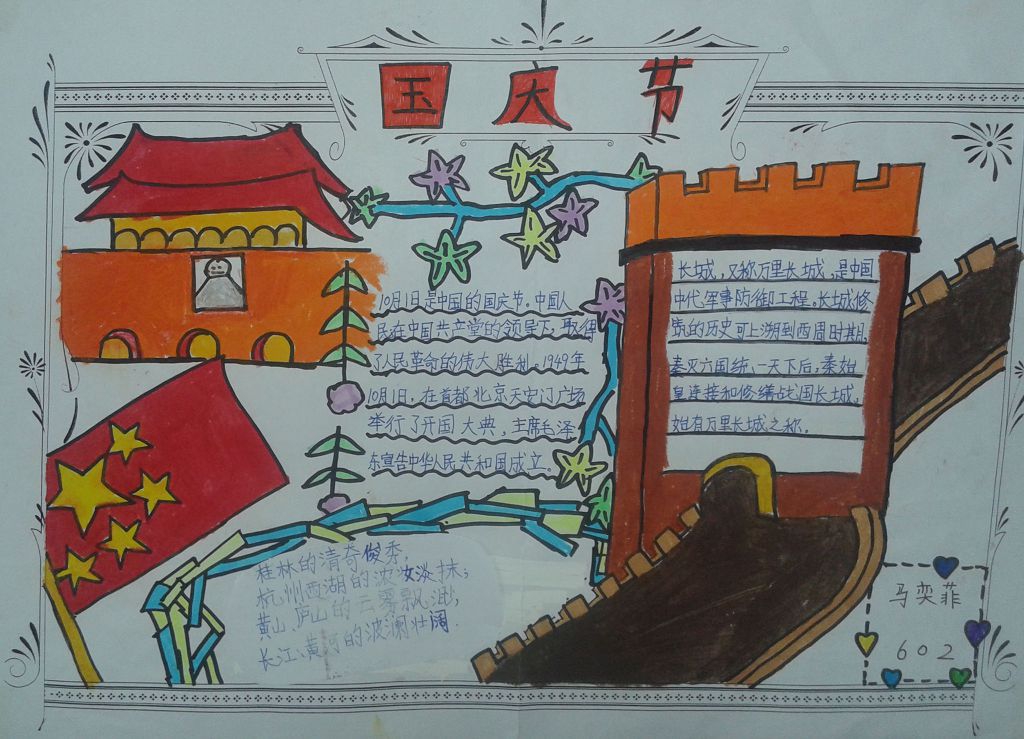 国庆节
10月1日是中国的国庆节。中国人
民在中国共产党的领导下,取得
了人民革命的伟大胜利。1949年
10月1日,在首都北京天安门广场
举行了开国大典,主席毛泽
东宣告中华人民共和国成立。
长城,又称万里长城,是中国
中代军事防御工程。长城修
筑的历史可上溯到西周时期,
秦灭六国统,一天下后,秦始
皇连接和修缮战国长城,
始有万里长城之称。
桂林的清奇俊秀,
杭州西湖的浓妆淡抹;
黄山、庐山的云雾飘渺,
长江、黄河的波澜壮阔.
马奕菲
602